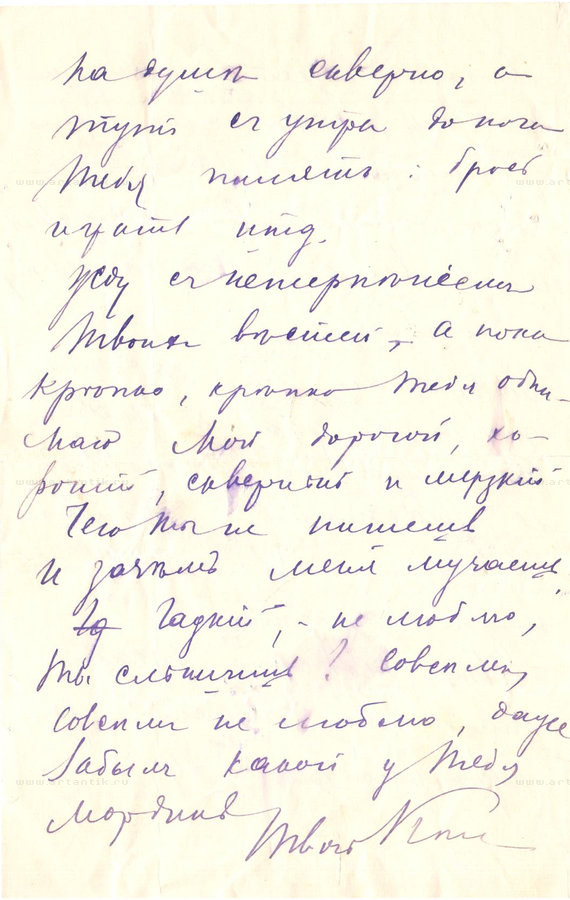 на душѣ скверно, а
тутъ съ утра до ночи
Тебя пилятъ: брось
играть итд.
Жду съ нетерпѣніемъ
Твоихъ вѣстей, а пока
крѣпко, крѣпко Тебя обни-
маю мой дорогой, хо-
рошій, скверный и мерзкій
Чего ты не пишешь
и зачѣмъ меня мучаешь
Гадкій, не люблю,
Ты слышишь? Совсѣмъ,
совсѣмъ не люблю, даже
забылъ какой у Тебя
мордикъ
Твой